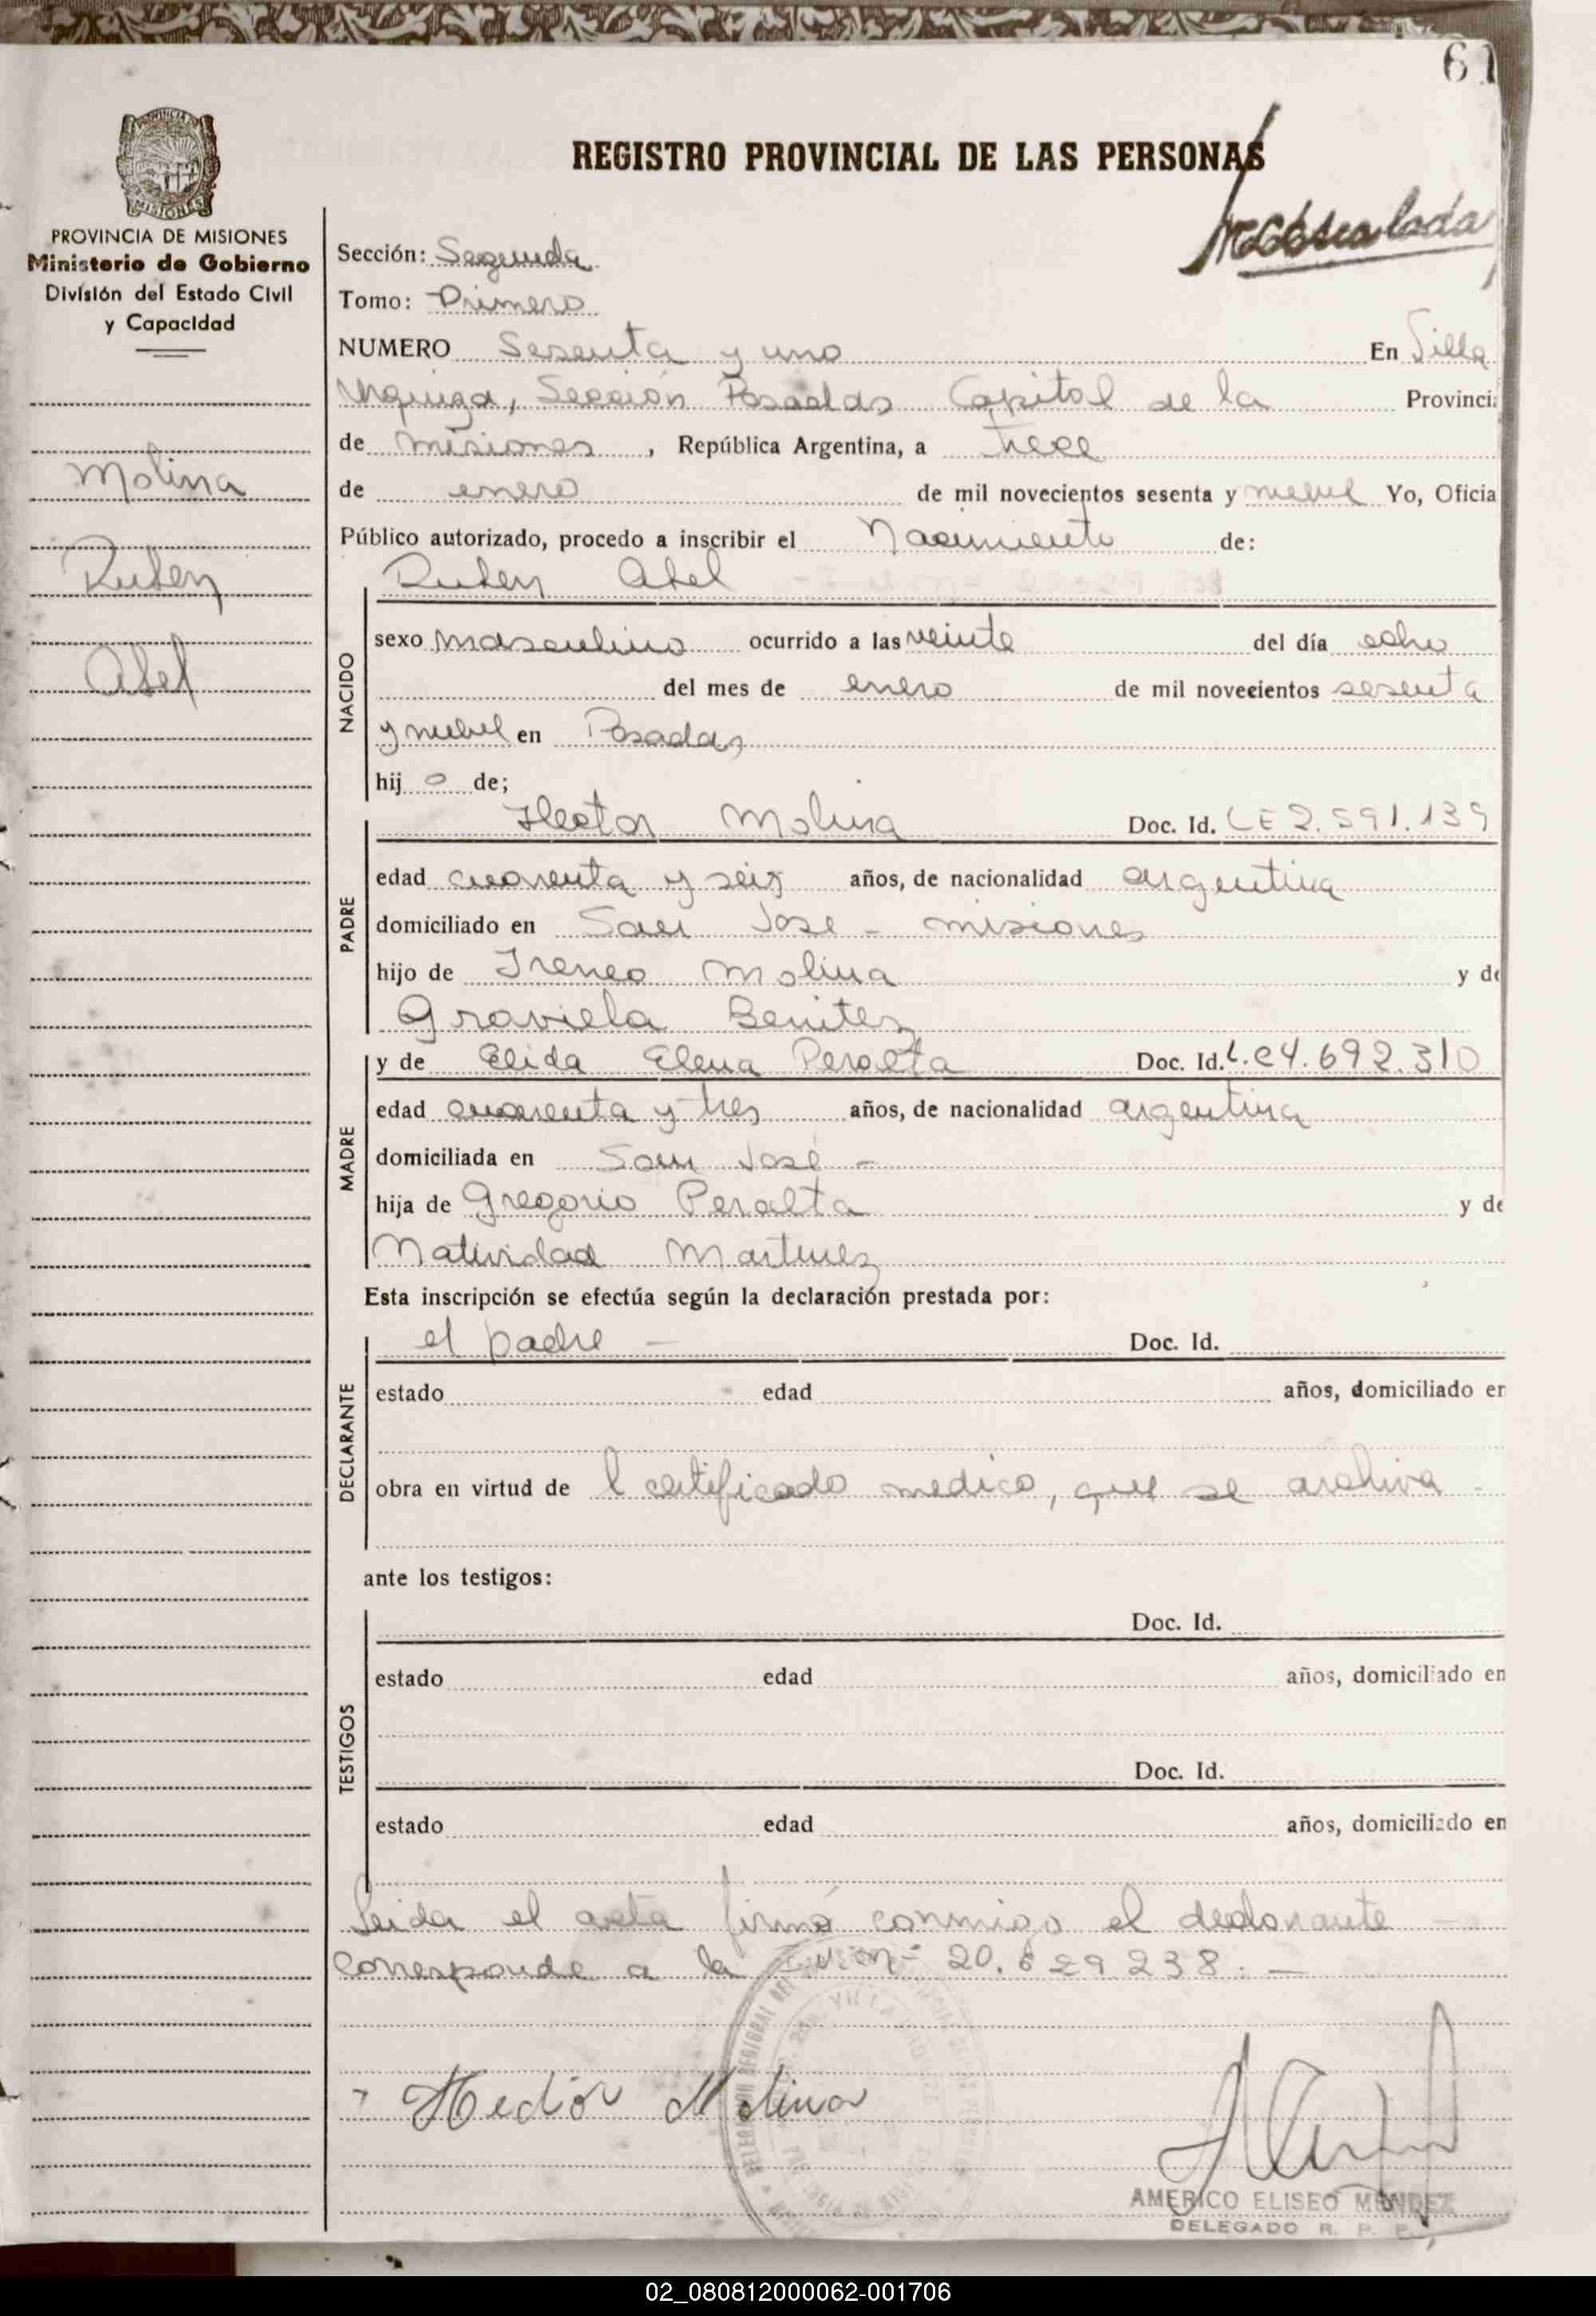 61
REGISTRO PROVINCIAL DE LAS PERSONAS
PROVINCIA DE MISIONES
Ministerio de Gobierno
División del Estado Civil
y Capacidad
Molina
Ruben
Abel
Sección: Segunda
Tomo: Primero
NUMERO Sesenta y uno En Villa
Urquiza, Sección Posadas Capital de la Provinci
de misiones, República Argentina, a trece
de enero de mil novecientos sesenta y nuebe Yo, Oficia
Público autorizado, procedo a inscribir el Nacimiento de:
NACIDO
Ruben Abel
sexo masculino ocurrido a las veinte del día ocho
del mes de enero de mil novecientos sesenta
y nuebe en Posadas
hijo de;
PADRE
Hector Molina Doc. Id. LE 2.591.139
edad cuarenta y seis años, de nacionalidad argentina
domiciliado en San Jose - misiones
hijo de Ireneo Molina y de
Graviela Benitez
MADRE
y de Elida Elena Peralta Doc. Id. L.C 4.692.310
edad cuarenta y tres años, de nacionalidad argentina
domiciliada en San José -
hija de Gregorio Peralta y de
Natividad Martinez
Esta inscripción se efectúa según la declaración prestada por:
DECLARANTE
el padre - Doc. Id.
estado edad años, domiciliado en
obra en virtud del certificado medico, que se archiva -
ante los testigos:
TESTIGOS
Doc. Id.
estado edad años, domiciliado en
Doc. Id.
estado edad años, domiciliado en
Leida el acta firmó conmigo el declarante -
Corresponde a la 20.629.238. -
Hector Molina
AMERICO ELISEO MENDEZ
DELEGADO R. P. P.
02_080812000062-001706